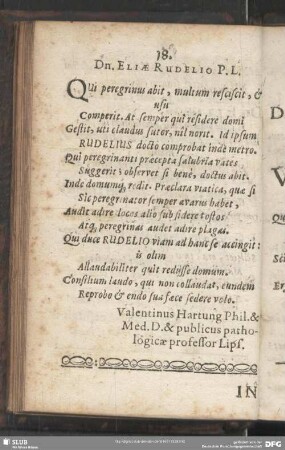 18.
Dn. ELIÆ RUDELIO P. L.
QUi peregrinus abit, multum resciscit, &
usu
Comperit. At semper qui residere domi
Gestit, uti claudus sutor, nil norit. Id ipsum
RUDELIUS docto comprobat inde metro.
Qui peregrinanti præcepta salubria vates
Suggerit; observet si benè, doctus abit.
Inde domumq; redit. Præclara viatica, quæ si
Sic peregrinator semper avarus habet,
Audet adire locos alio sub sidere tostos
Atq; peregrinas audet adire plagas.
Qui duce RUDELIO viam ad hanc se accingit:
is olim
Allaudabiliter quit rediisse domum.
Consilium laudo, qui non collaudat, eundem
Reprobo & cendo sua fæce sedere volo.
Valentinus Hartung Phil. &
Med. D. & publicus patho-
logicæ professor Lips.
IN
SLUB
DFG